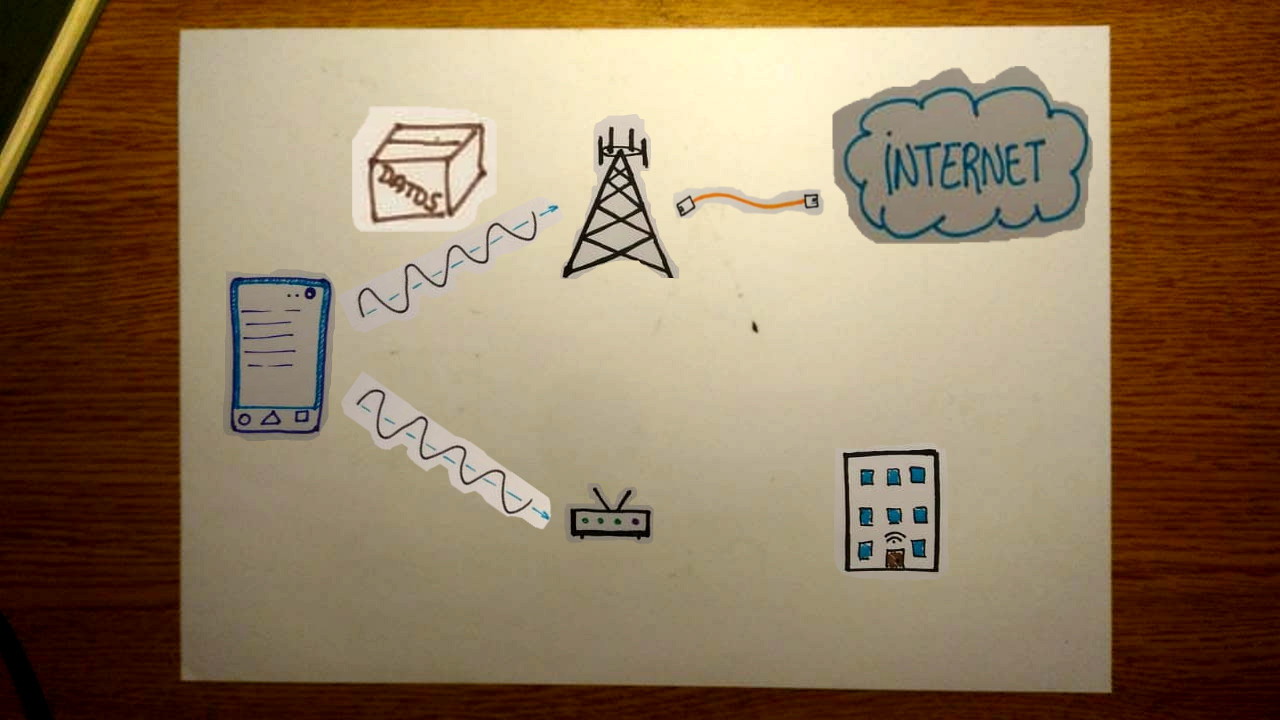 DATOS
İNTERNET